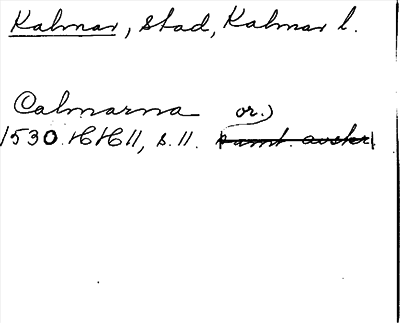 Kalmar, stad, Kalmar l.
Calmarna or.)
1530 HH 11, s. 11. samt. avskr.